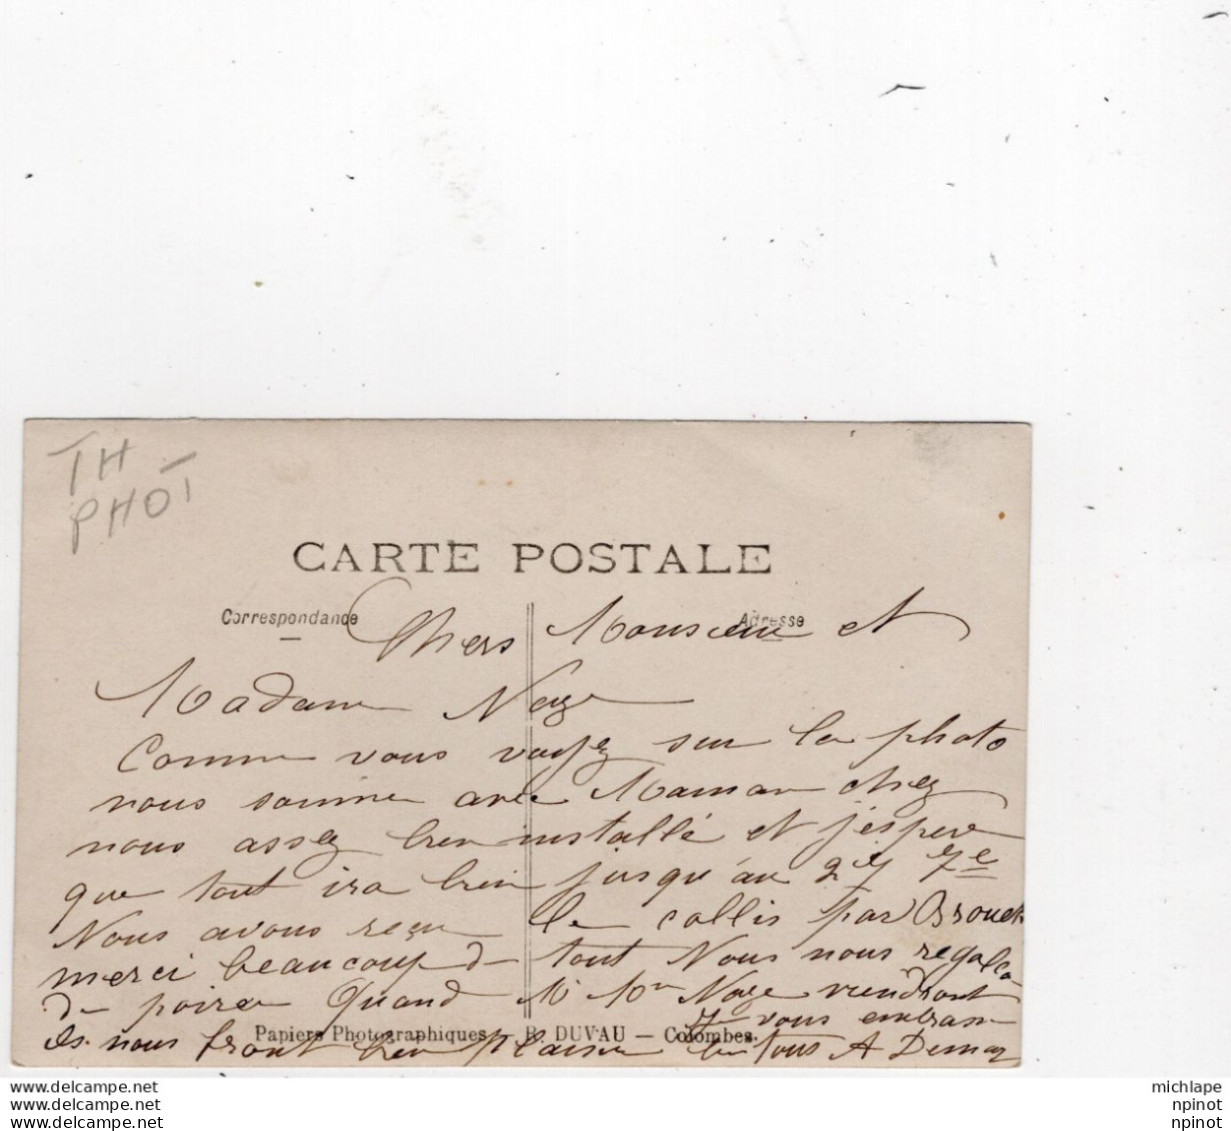 TH
PHOT
CARTE POSTALE
Correspondance
Adresse
Chers Monsieur et
Madame
Comme vous voyez sur la photo
nous somme avec Maman chez
nous assez bien installé et j'espere
que tout ira bien jusqu'au 27 7e
Nous avons reçu le collis par
merci beaucoup de tout Nous nous
de poires Quand Mr Me viendront
Papiers Photographiques — B. DUVAU — Colombes.
Je vous embrasse
ils nous front bien plaisir bien tous A
michlape
npinot
npinot